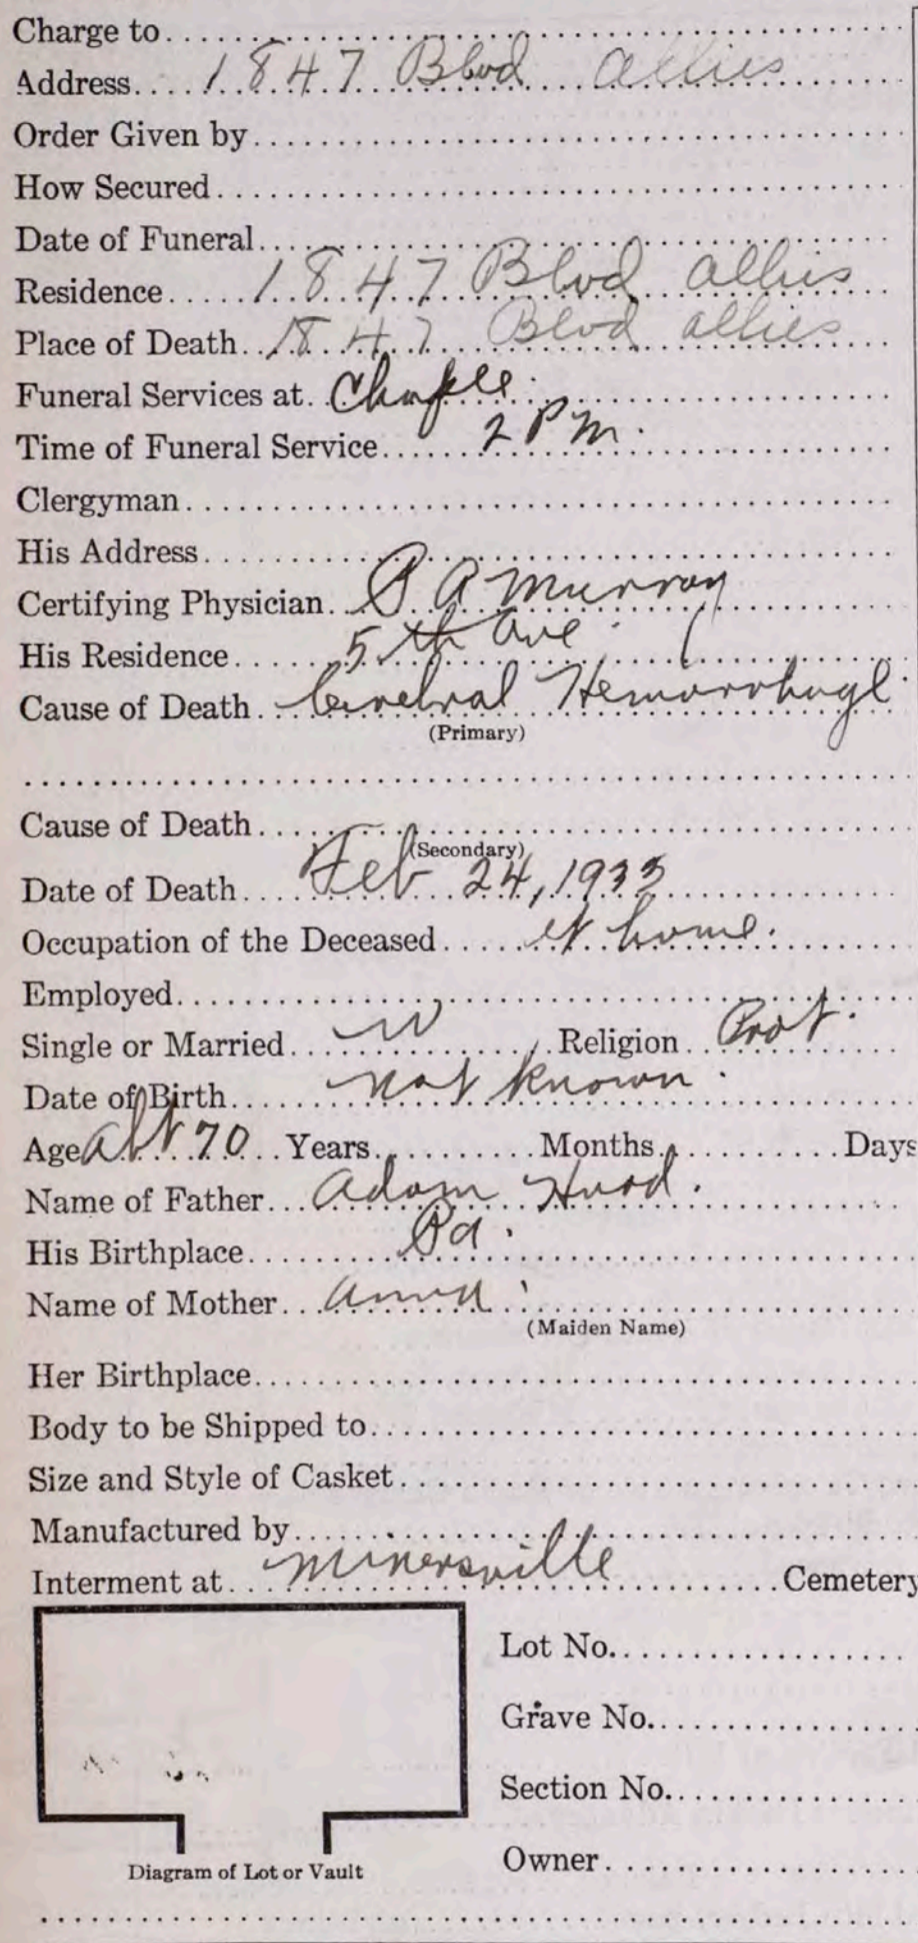 Charge to
Address 1847 Blvd allies
Order Given by
How Secured
Date of Funeral
Residence 1847 Blvd allies
Place of Death 1847 Blvd allies
Funeral Services at Chaple
Time of Funeral Service 2 P m.
Clergyman
His Address
Certifying Physician P A Murray
His Residence 5th ave
Cause of Death Cerebral Hemorrhage
(Primary)
Cause of Death
(Secondary)
Date of Death Feb 24, 1933
Occupation of the Deceased at home.
Employed
Single or Married W Religion Prot.
Date of Birth not known
Age abt 70 Years Months Days
Name of Father Adam Hood.
His Birthplace Pa.
Name of Mother Anna
(Maiden Name)
Her Birthplace
Body to be Shipped to
Size and Style of Casket
Manufactured by
Interment at Minersville Cemetery
Lot No.
Grave No.
Section No.
Owner
Diagram of Lot or Vault